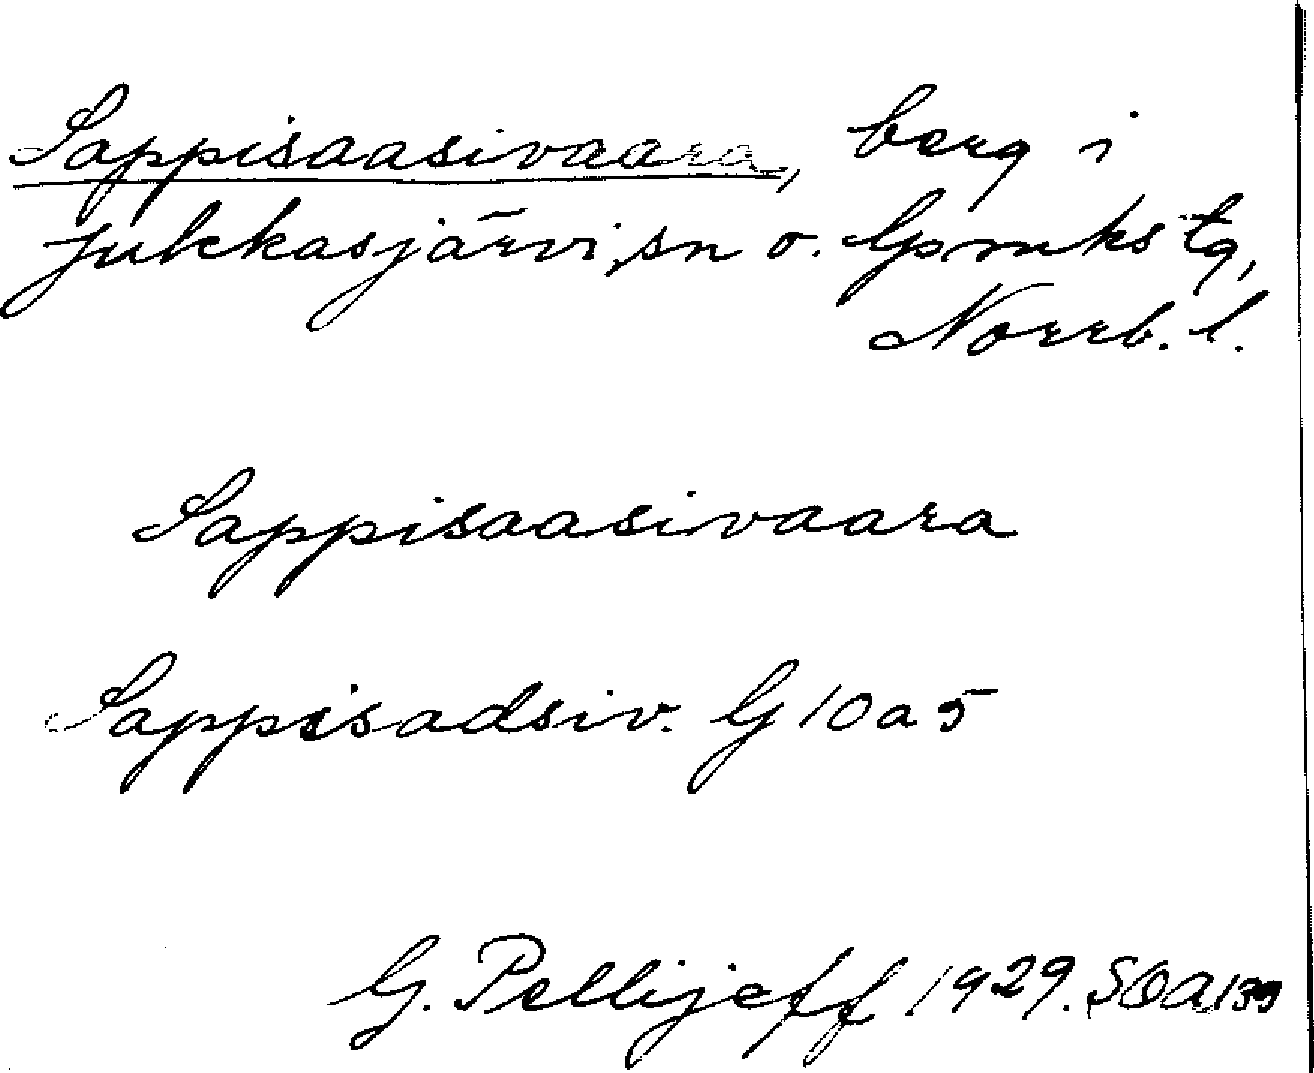 Sappisaasivaara, berg i
Jukkasjärvi, sn o. Lpmks tg,
Norrb. l.
Sappisaasivaara
Sappisadsiv. G 10 a 5
G. Pellijeff 1929. SOA 139